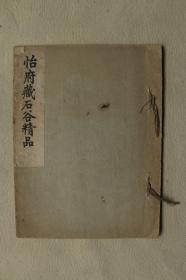 怡府藏石谷精品